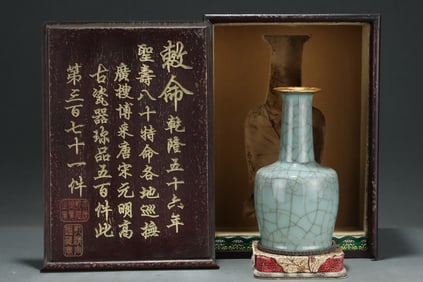 敕命乾隆五十六年
聖壽八十特命各地巡撫
廣搜博采唐宋元明高
古瓷器珎品五百件此
第三百七十一件